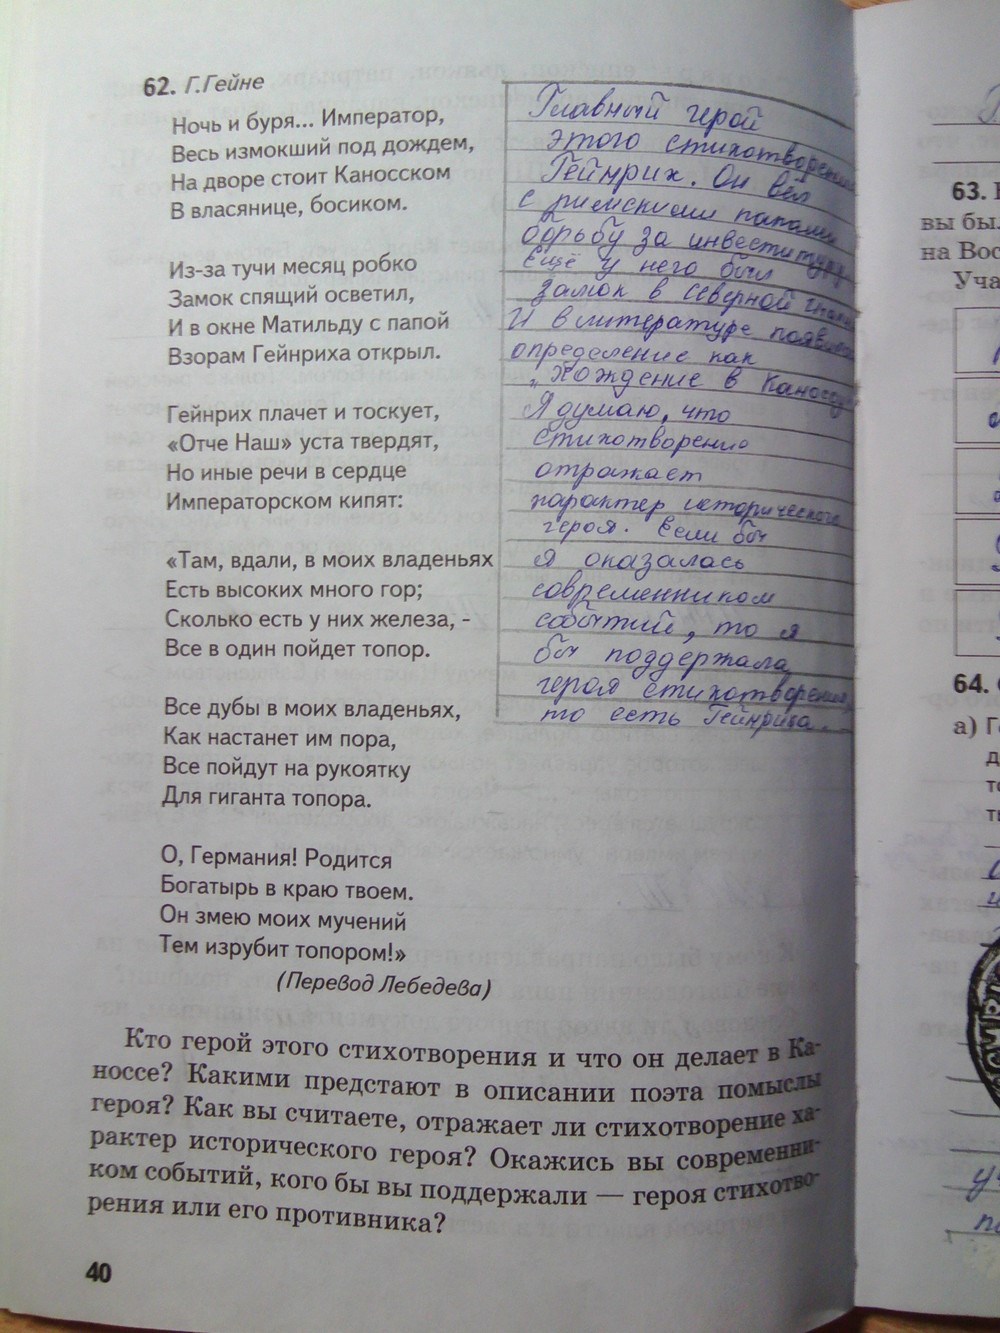 62. Г.Гейне
Ночь и буря... Император,
Весь измокший под дождем,
На дворе стоит Каносском
В власянице, босиком.
Из-за тучи месяц робко
Замок спящий осветил,
И в окне Матильду с папой
Взорам Гейнриха открыл.
Гейнрих плачет и тоскует,
«Отче Наш» уста твердят,
Но иные речи в сердце
Императорском кипят:
«Там, вдали, в моих владеньях
Есть высоких много гор;
Сколько есть у них железа, -
Все в один пойдет топор.
Все дубы в моих владеньях,
Как настанет им пора,
Все пойдут на рукоятку
Для гиганта топора.
О, Германия! Родится
Богатырь в краю твоем.
Он змею моих мучений
Тем изрубит топором!»
(Перевод Лебедева)
Главный герой
этого стихотворения
Гейнрих. Он вёл
с римскими папами
борьбу за инвеституру
Ещё у него был
замок в Северной
И в литературе
определение как
"Хождение в Каноссу"
Я думаю, что
стихотворение
отражает
характер исторического
героя. Если бы
я оказалась
современником
событий, то я
бы поддержала
героя стихотворения,
то есть Гейнриха.
Кто герой этого стихотворения и что он делает в Ка-
носсе? Какими предстают в описании поэта помыслы
героя? Как вы считаете, отражает ли стихотворение ха-
рактер исторического героя? Окажись вы современни-
ком событий, кого бы вы поддержали — героя стихотво-
рения или его противника?
40
63.
вы бы
на Вос
Уча
64.
а)